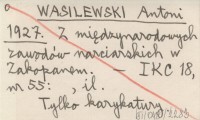 WASILEWSKI Antoni
1927. Z międzynarodowych
zawodów narciarskich w
Zakopanem. — IKC 18,
nr 55: , il.
Tylko karykatury